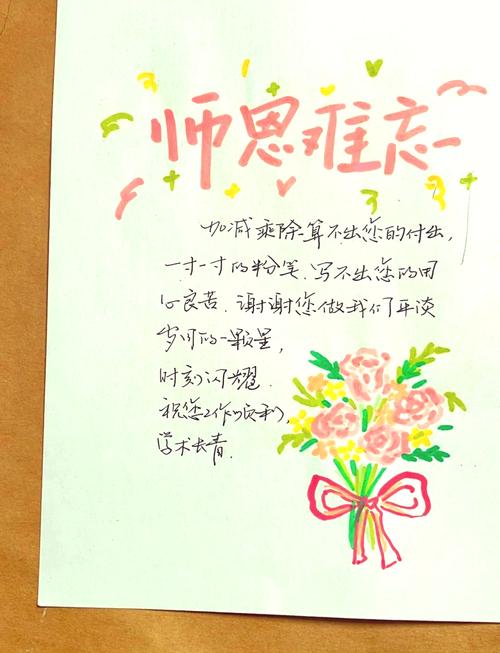 师恩难忘
加减乘除算不出您的付出,
一寸一寸的粉笔.写不出您的用
心良苦.谢谢您做我们平淡
岁月的一颗星,
时刻闪耀.
祝您工作顺利,
学术长青.